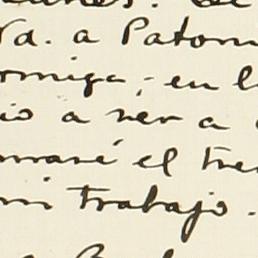 Vd. a Patom
ormiga, en l
io a ver a
omaré el tre
mi trabajo.